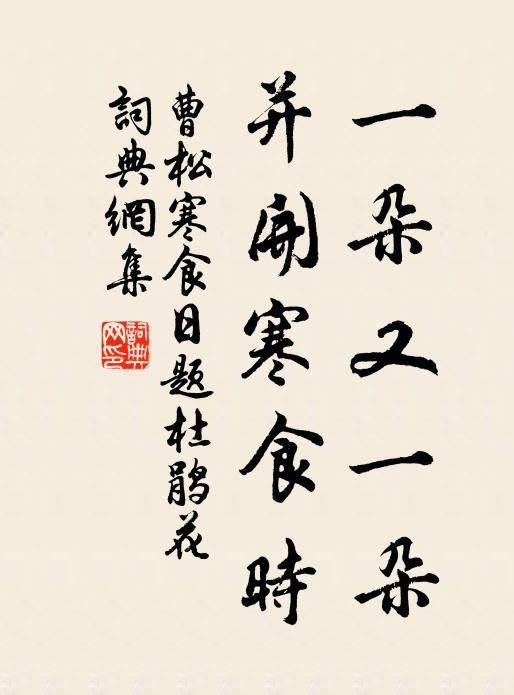 一朵又一朵
并開寒食時
曹松寒食日题杜鹃花
詞典網集
詞典网印